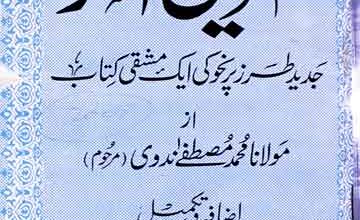 جدید طرز پر نحو کی ایک مشقی کتاب
از
مولانا محمد مصطفےٰ ندوی (مرحوم)
اضافہ و تکمیل